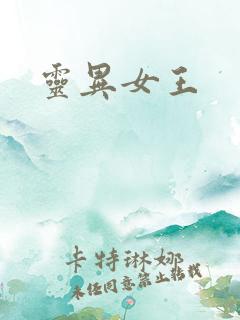 靈異女王
卡特琳娜
未经同意禁止转载